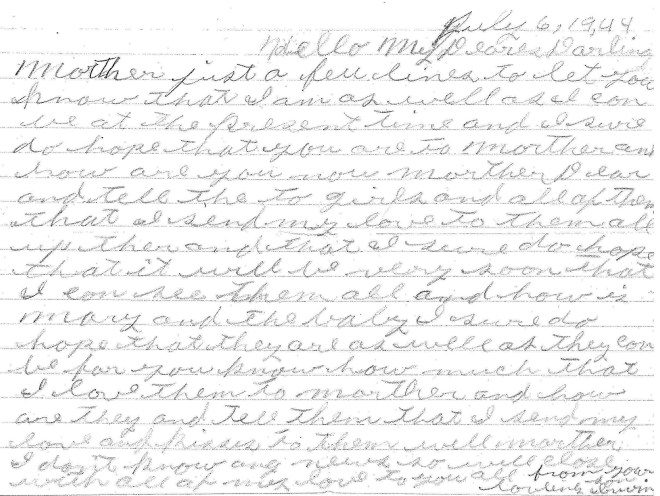 July 6, 1944
Hello My Deares Darling
Morther just a few lines to let you
know that I am as well as I con
be at the present time and I sure
do hope that you are to Morther and
how are you now morther Dear
and tell the to girls and all of them
that I send my love to them all
up ther and that I sure do hope
that it will be very soon that
I con see them all and how is
Mary and the baby I sure do
hope that they are as well as they con
be for you know how much that
I love them to morther and how
are they and tell them that I send my
love and kisses to them well morther
I don't know any news so will close
with all of my love to you all from your
loving son